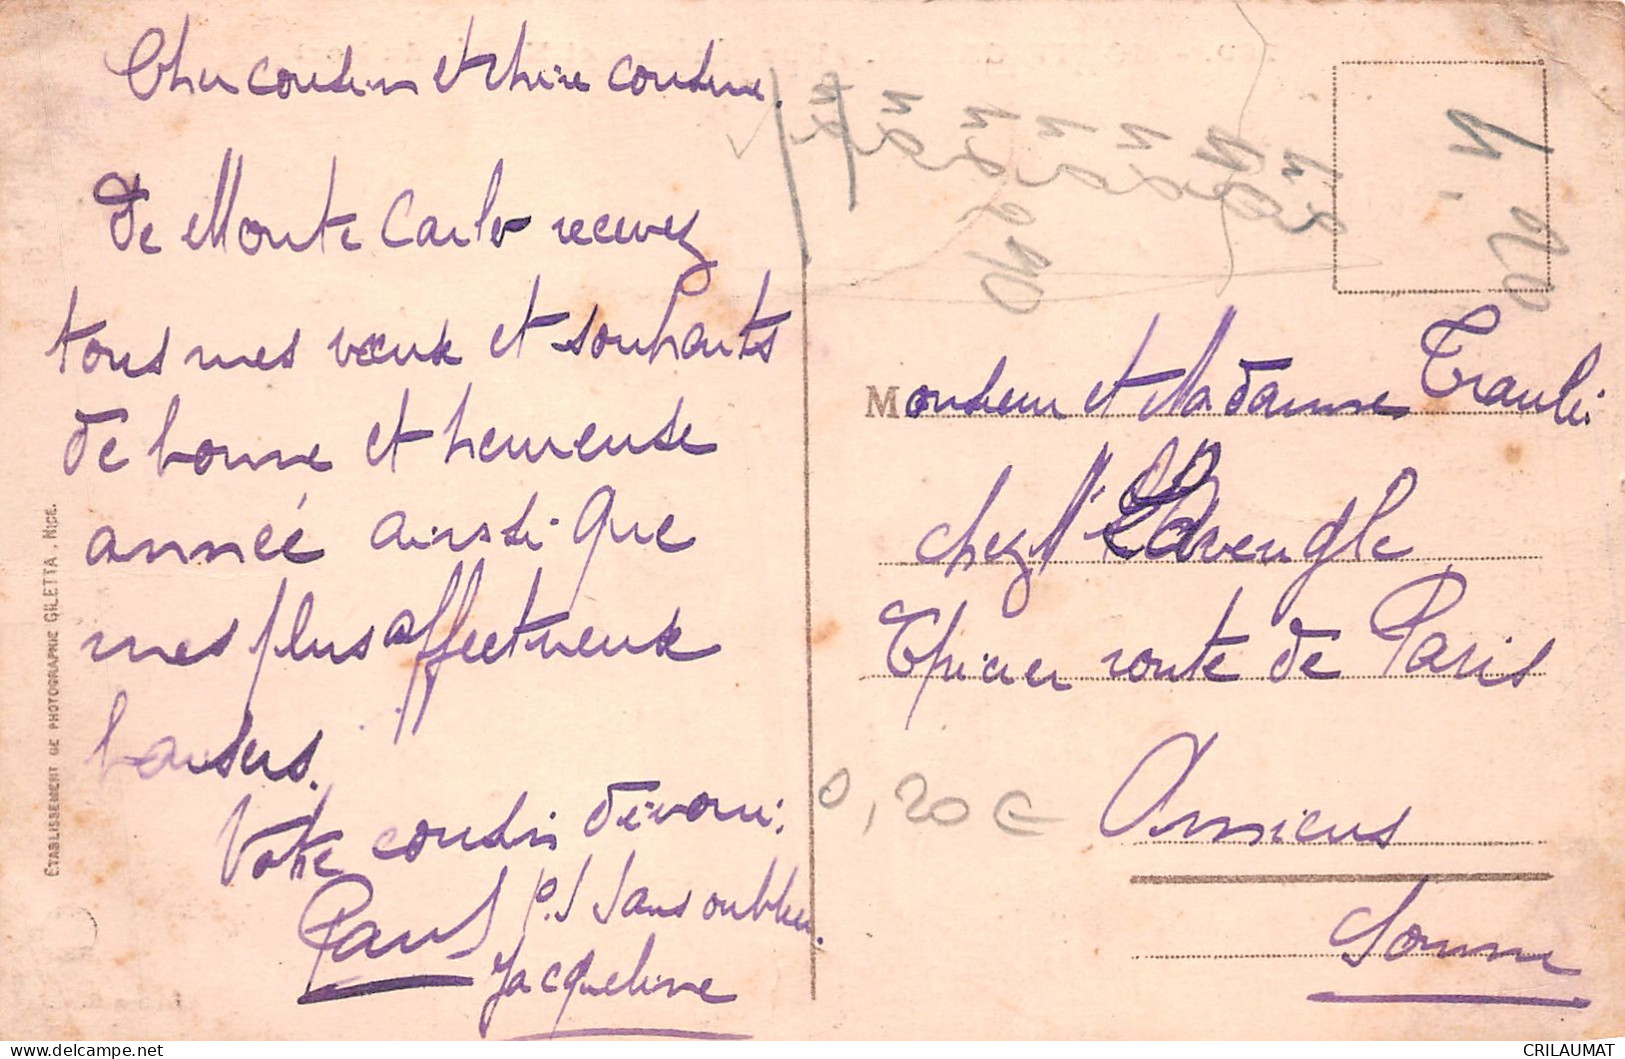 Cher cousin et chère cousine.
De Monte Carlo recevez
tous mes vœux et souhaits
de bonne et heureuse
année ainsi que
mes plus affectueux
baisers.
Votre cousin dévoué.
Paul
P.S Sans oublier
Jacqueline
ÉTABLISSEMENT DE PHOTOGRAPHIE GILETTA, NICE.
Monsieur et Madame
chez l'Aveugle
Epicier route de Paris
Amiens
Somme
0,20 €
CRILAUMAT